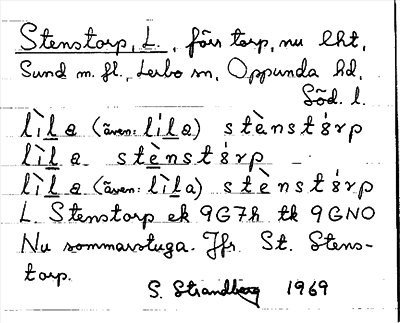 Stenstorp, L., förr torp, nu lht,
Sund m. fl., Lerbo sn, Oppunda hd,
Söd. l.
lìla (även: líla) stènstórp
lìla stènstórp
lìla (även: lìla) stènstórp
L. Stenstorp ek 9G7h tk 9GNO
Nu sommarstuga. Jfr St. Stens-
torp.
S. Strandberg 1969